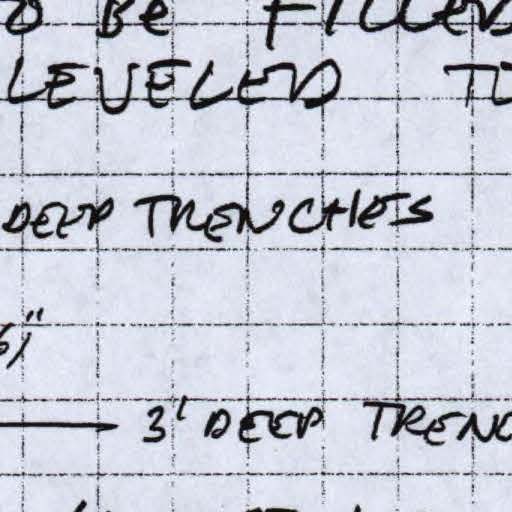 O BE FILLED
LEVELED TO
DEEP TRENCHES
6"
3' DEEP TRENC